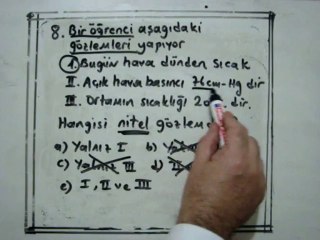 8. Bir öğrenci aşağıdaki
gözlemleri yapıyor
I. Bugün hava dünden sıcak
II. Açık hava basıncı 76cm-Hg dir
III. Ortamın sıcaklığı dir.
Hangisi nitel
a) Yalnız I b)
c) Yalnız III d)
e) I, II ve III